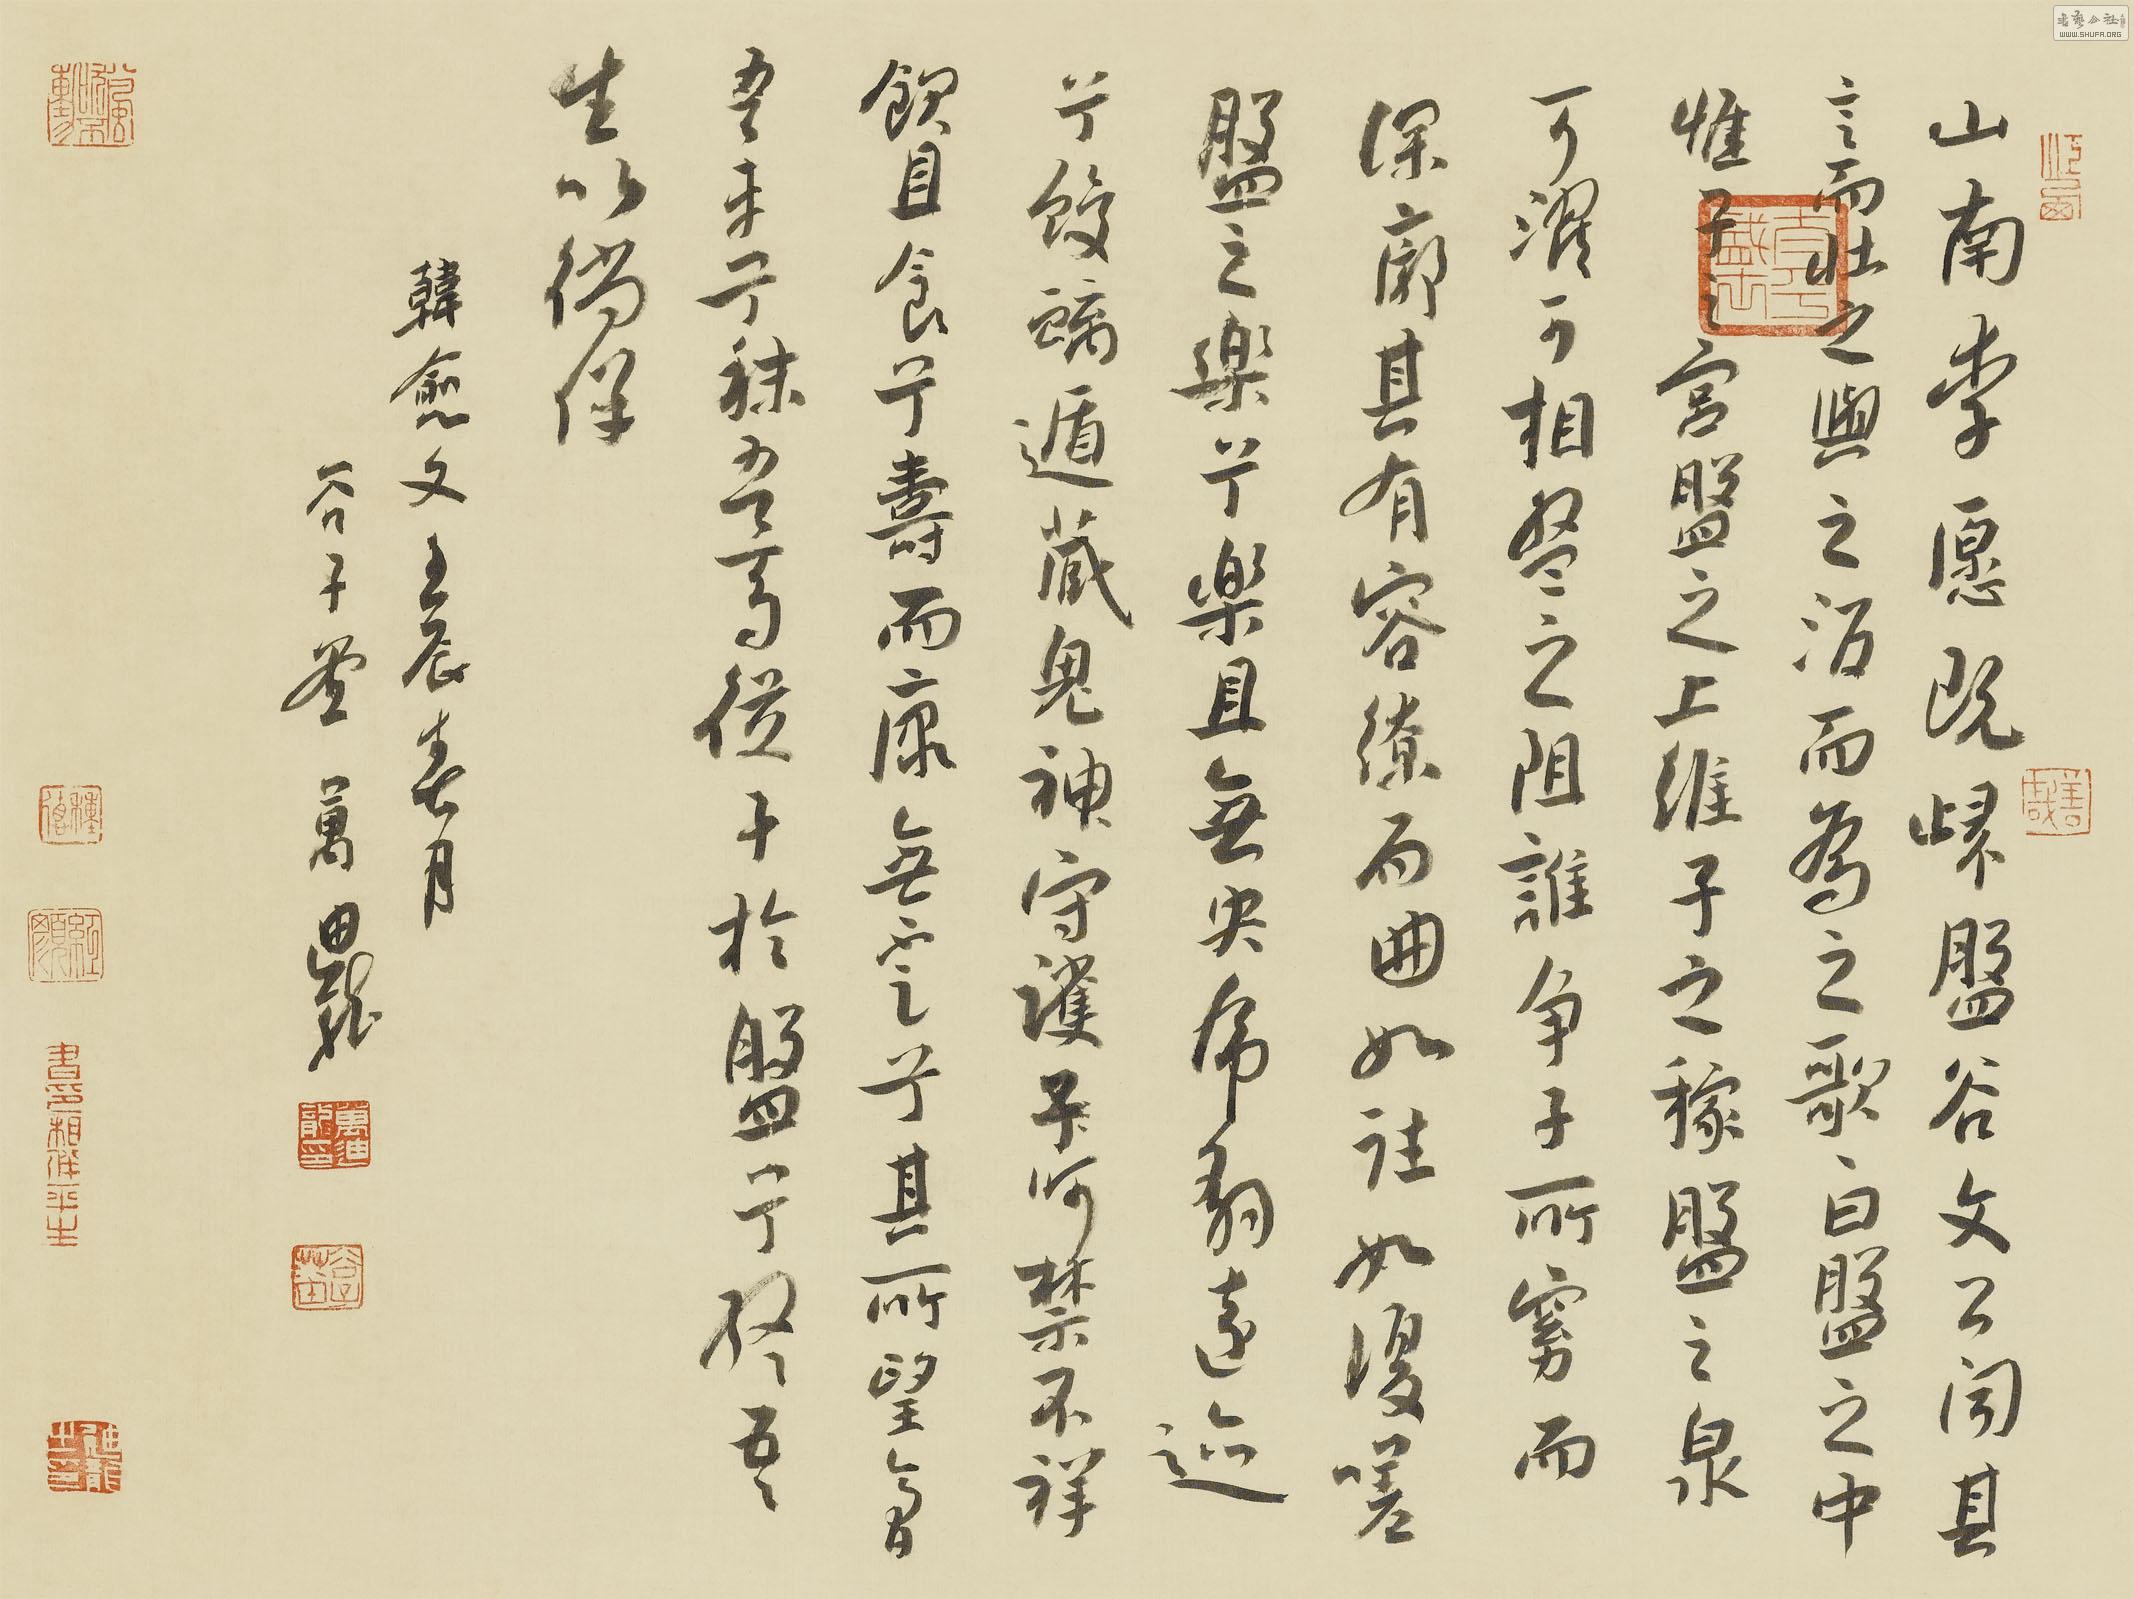 山南李愿既归盤谷文公闻其
言而壮之與之酒而为之歌〻曰盤之中
惟子之宫盤之上維子之稼盤之泉
可濯可相盤之阻誰争子所窈而
深廓其有容缭而曲如往如復嗟
盤之樂兮樂且無央虎豹遠迹
兮蛟螭遁藏鬼神守護兮呵禁不祥
飲且食兮壽而康無不足兮其所望膏
吾車兮秣吾馬從子於盤兮終吾
生以徜徉
韓愈文 壬辰春月
谷子 萬
書藝公社
WWW.SHUFA.ORG